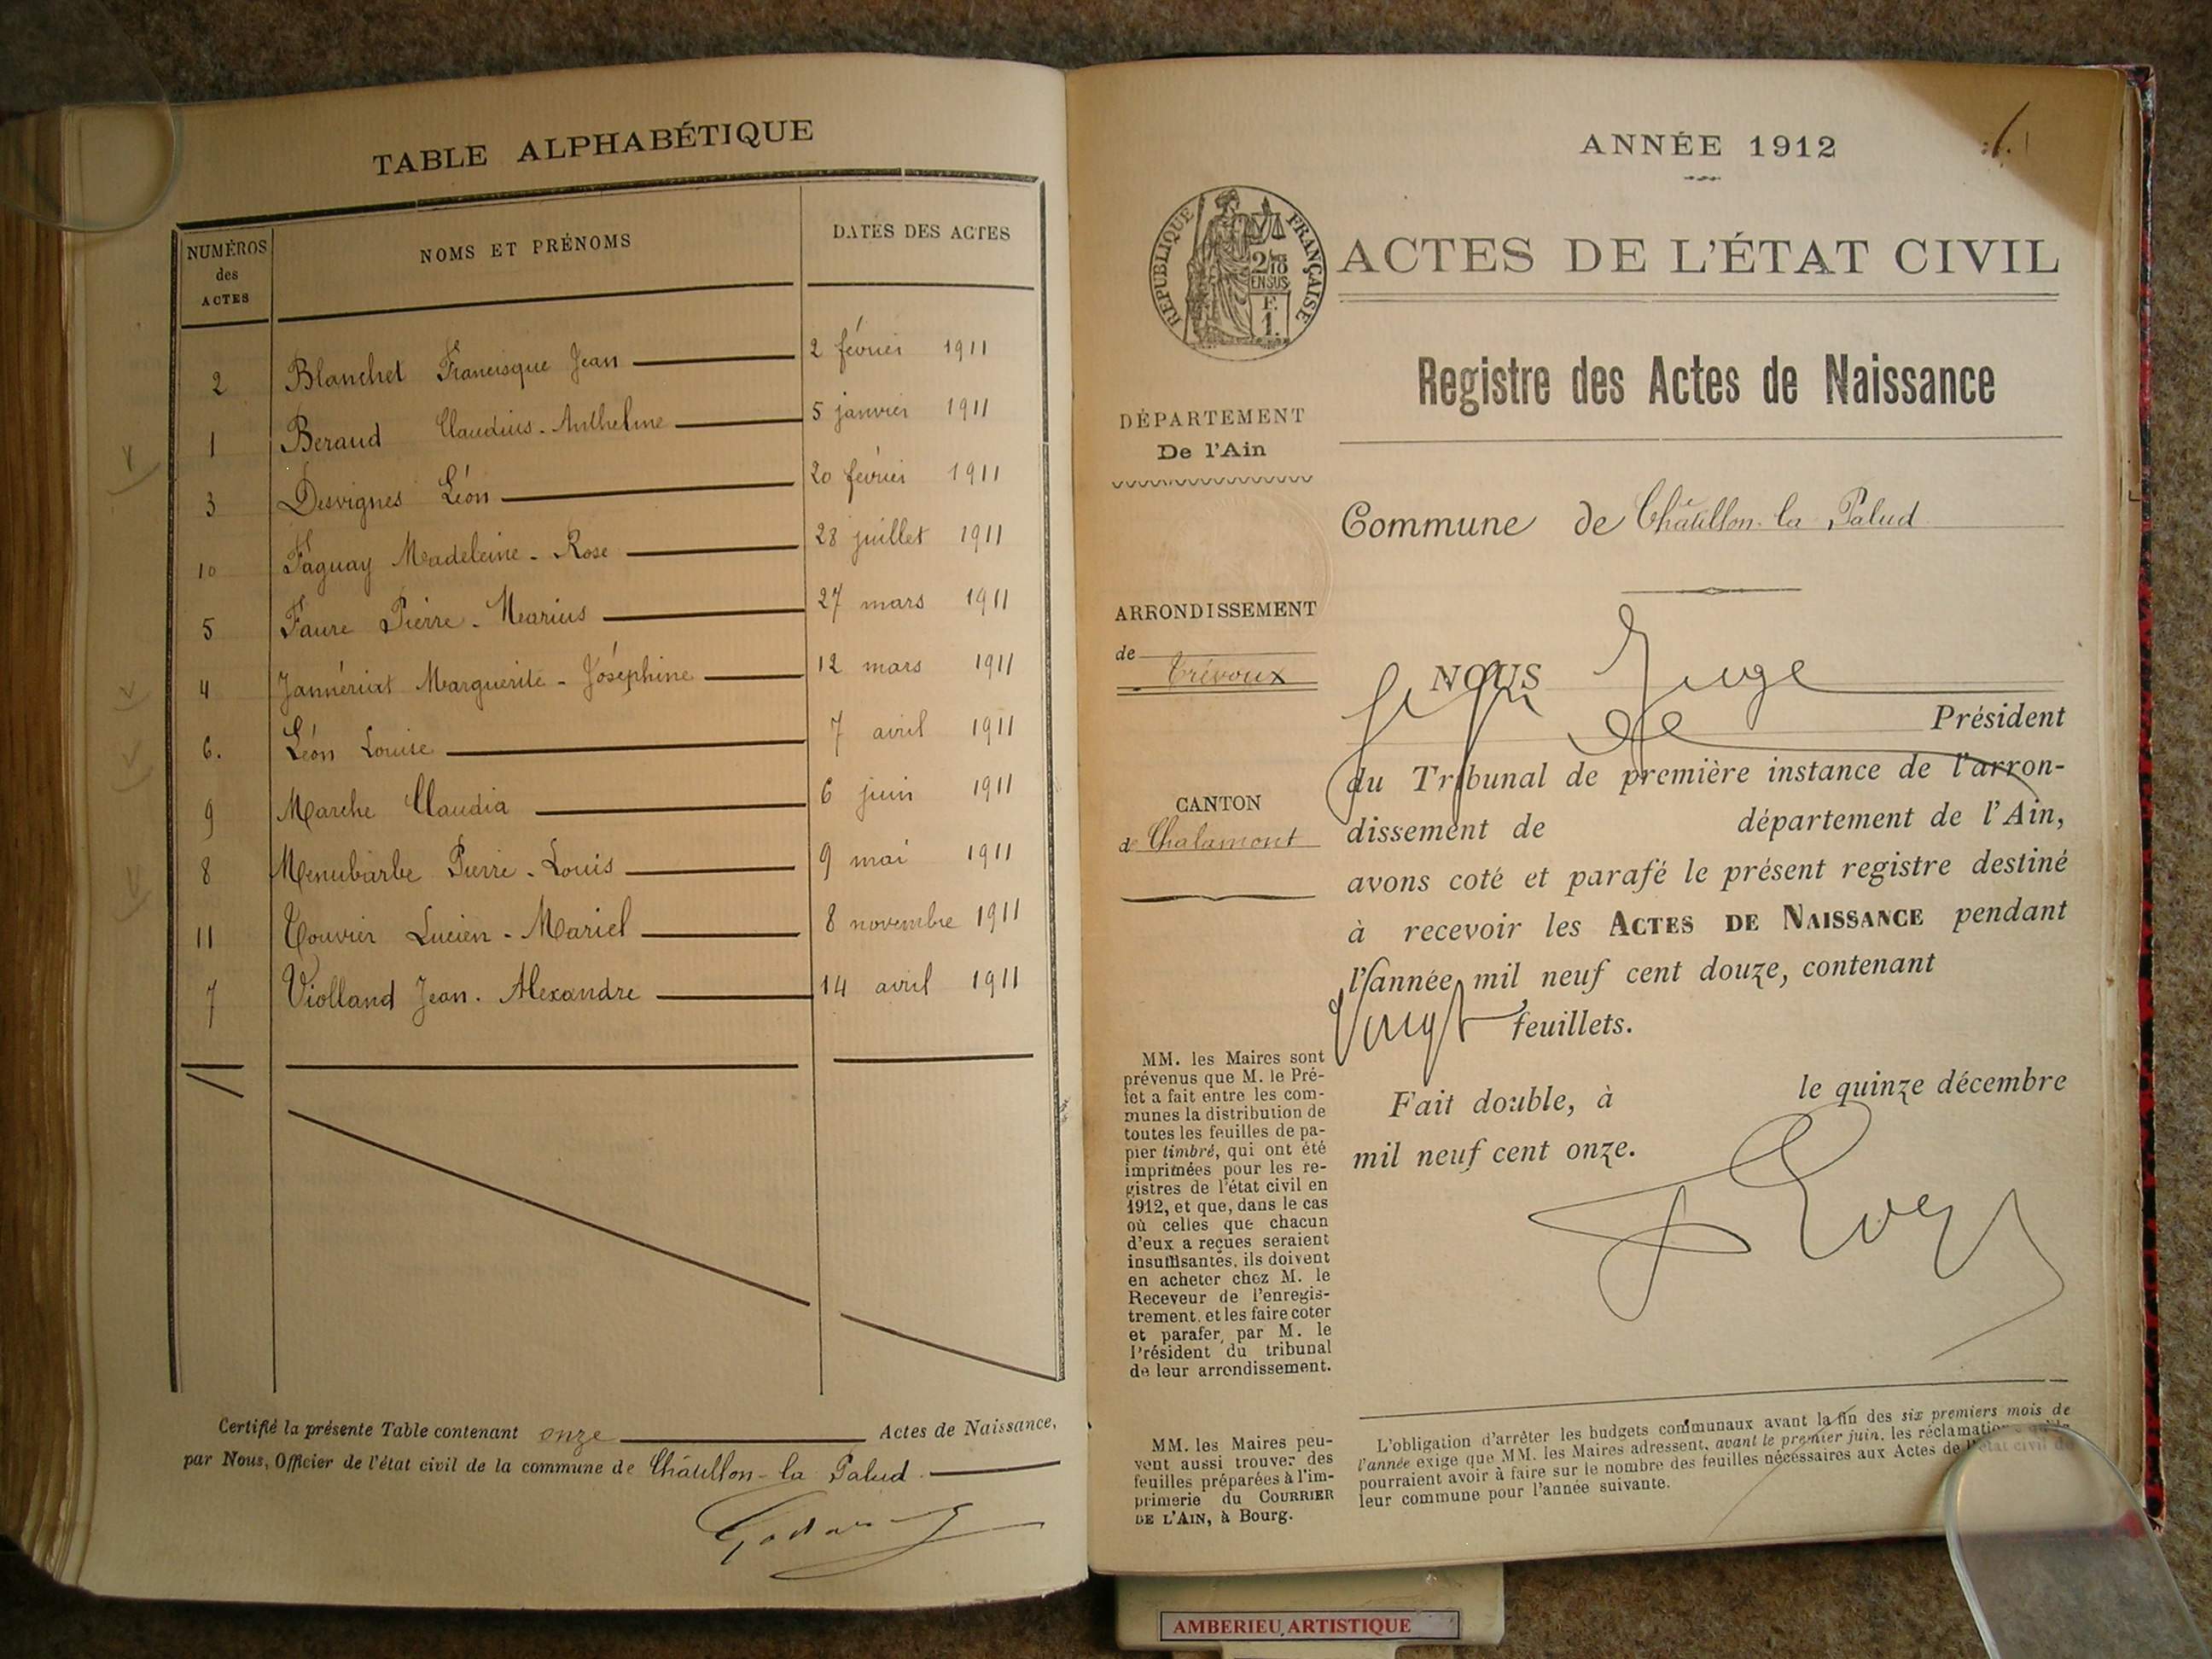 TABLE ALPHABÉTIQUE
NUMÉROS des ACTES NOMS ET PRÉNOMS DATES DES ACTES
2 Blanchet Francisque Jean 2 février 1911
1 Beraud Claudius-Anthelme 5 janvier 1911
3 Desvignes Léon 20 février 1911
10 Faguay Madeleine-Rose 28 juillet 1911
5 Faure Pierre-Marius 27 mars 1911
4 Jannériat Marguerite-Joséphine 12 mars 1911
6. Léon Louise 7 avril 1911
9 Marche Claudia 6 juin 1911
8 Menubarbe Pierre-Louis 9 mai 1911
11 Touvier Lucien-Mariel 8 novembre 1911
7 Violland Jean-Alexandre 14 avril 1911
Certifié la présente Table contenant onze Actes de Naissance,
par Nous, Officier de l'état civil de la commune de Châtillon-la Palud.
ANNÉE 1912
RÉPUBLIQUE FRANÇAISE
2/10
EN SUS
F.
1.
ACTES DE L'ÉTAT CIVIL
Registre des Actes de Naissance
DÉPARTEMENT
De l'Ain
Commune de Châtillon-la Palud
ARRONDISSEMENT
de
Trévoux
CANTON
de Chalamont
NOUS Juge
Président
du Tribunal de première instance de l'arron-
dissement de département de l'Ain,
avons coté et parafé le présent registre destiné
à recevoir les ACTES DE NAISSANCE pendant
l'année mil neuf cent douze, contenant
Vingt feuillets.
Fait double, à le quinze décembre
mil neuf cent onze.
MM. les Maires sont
prévenus que M. le Pré-
fet a fait entre les com-
munes la distribution de
toutes les feuilles de pa-
pier timbré, qui ont été
imprimées pour les re-
gistres de l'état civil en
1912, et que, dans le cas
où celles que chacun
d'eux a reçues seraient
insuffisantes, ils doivent
en acheter chez M. le
Receveur de l'enregis-
trement, et les faire coter
et parafer par M. le
Président du tribunal
de leur arrondissement.
MM. les Maires peu-
vent aussi trouver des
feuilles préparées à l'im-
primerie du COURRIER
DE L'AIN, à Bourg.
L'obligation d'arrêter les budgets communaux avant la fin des six premiers mois de
l'année exige que MM. les Maires adressent, avant le premier juin, les réclamations
pourraient avoir à faire sur le nombre des feuilles nécessaires aux Actes de l'état civil de
leur commune pour l'année suivante.
AMBERIEU ARTISTIQUE